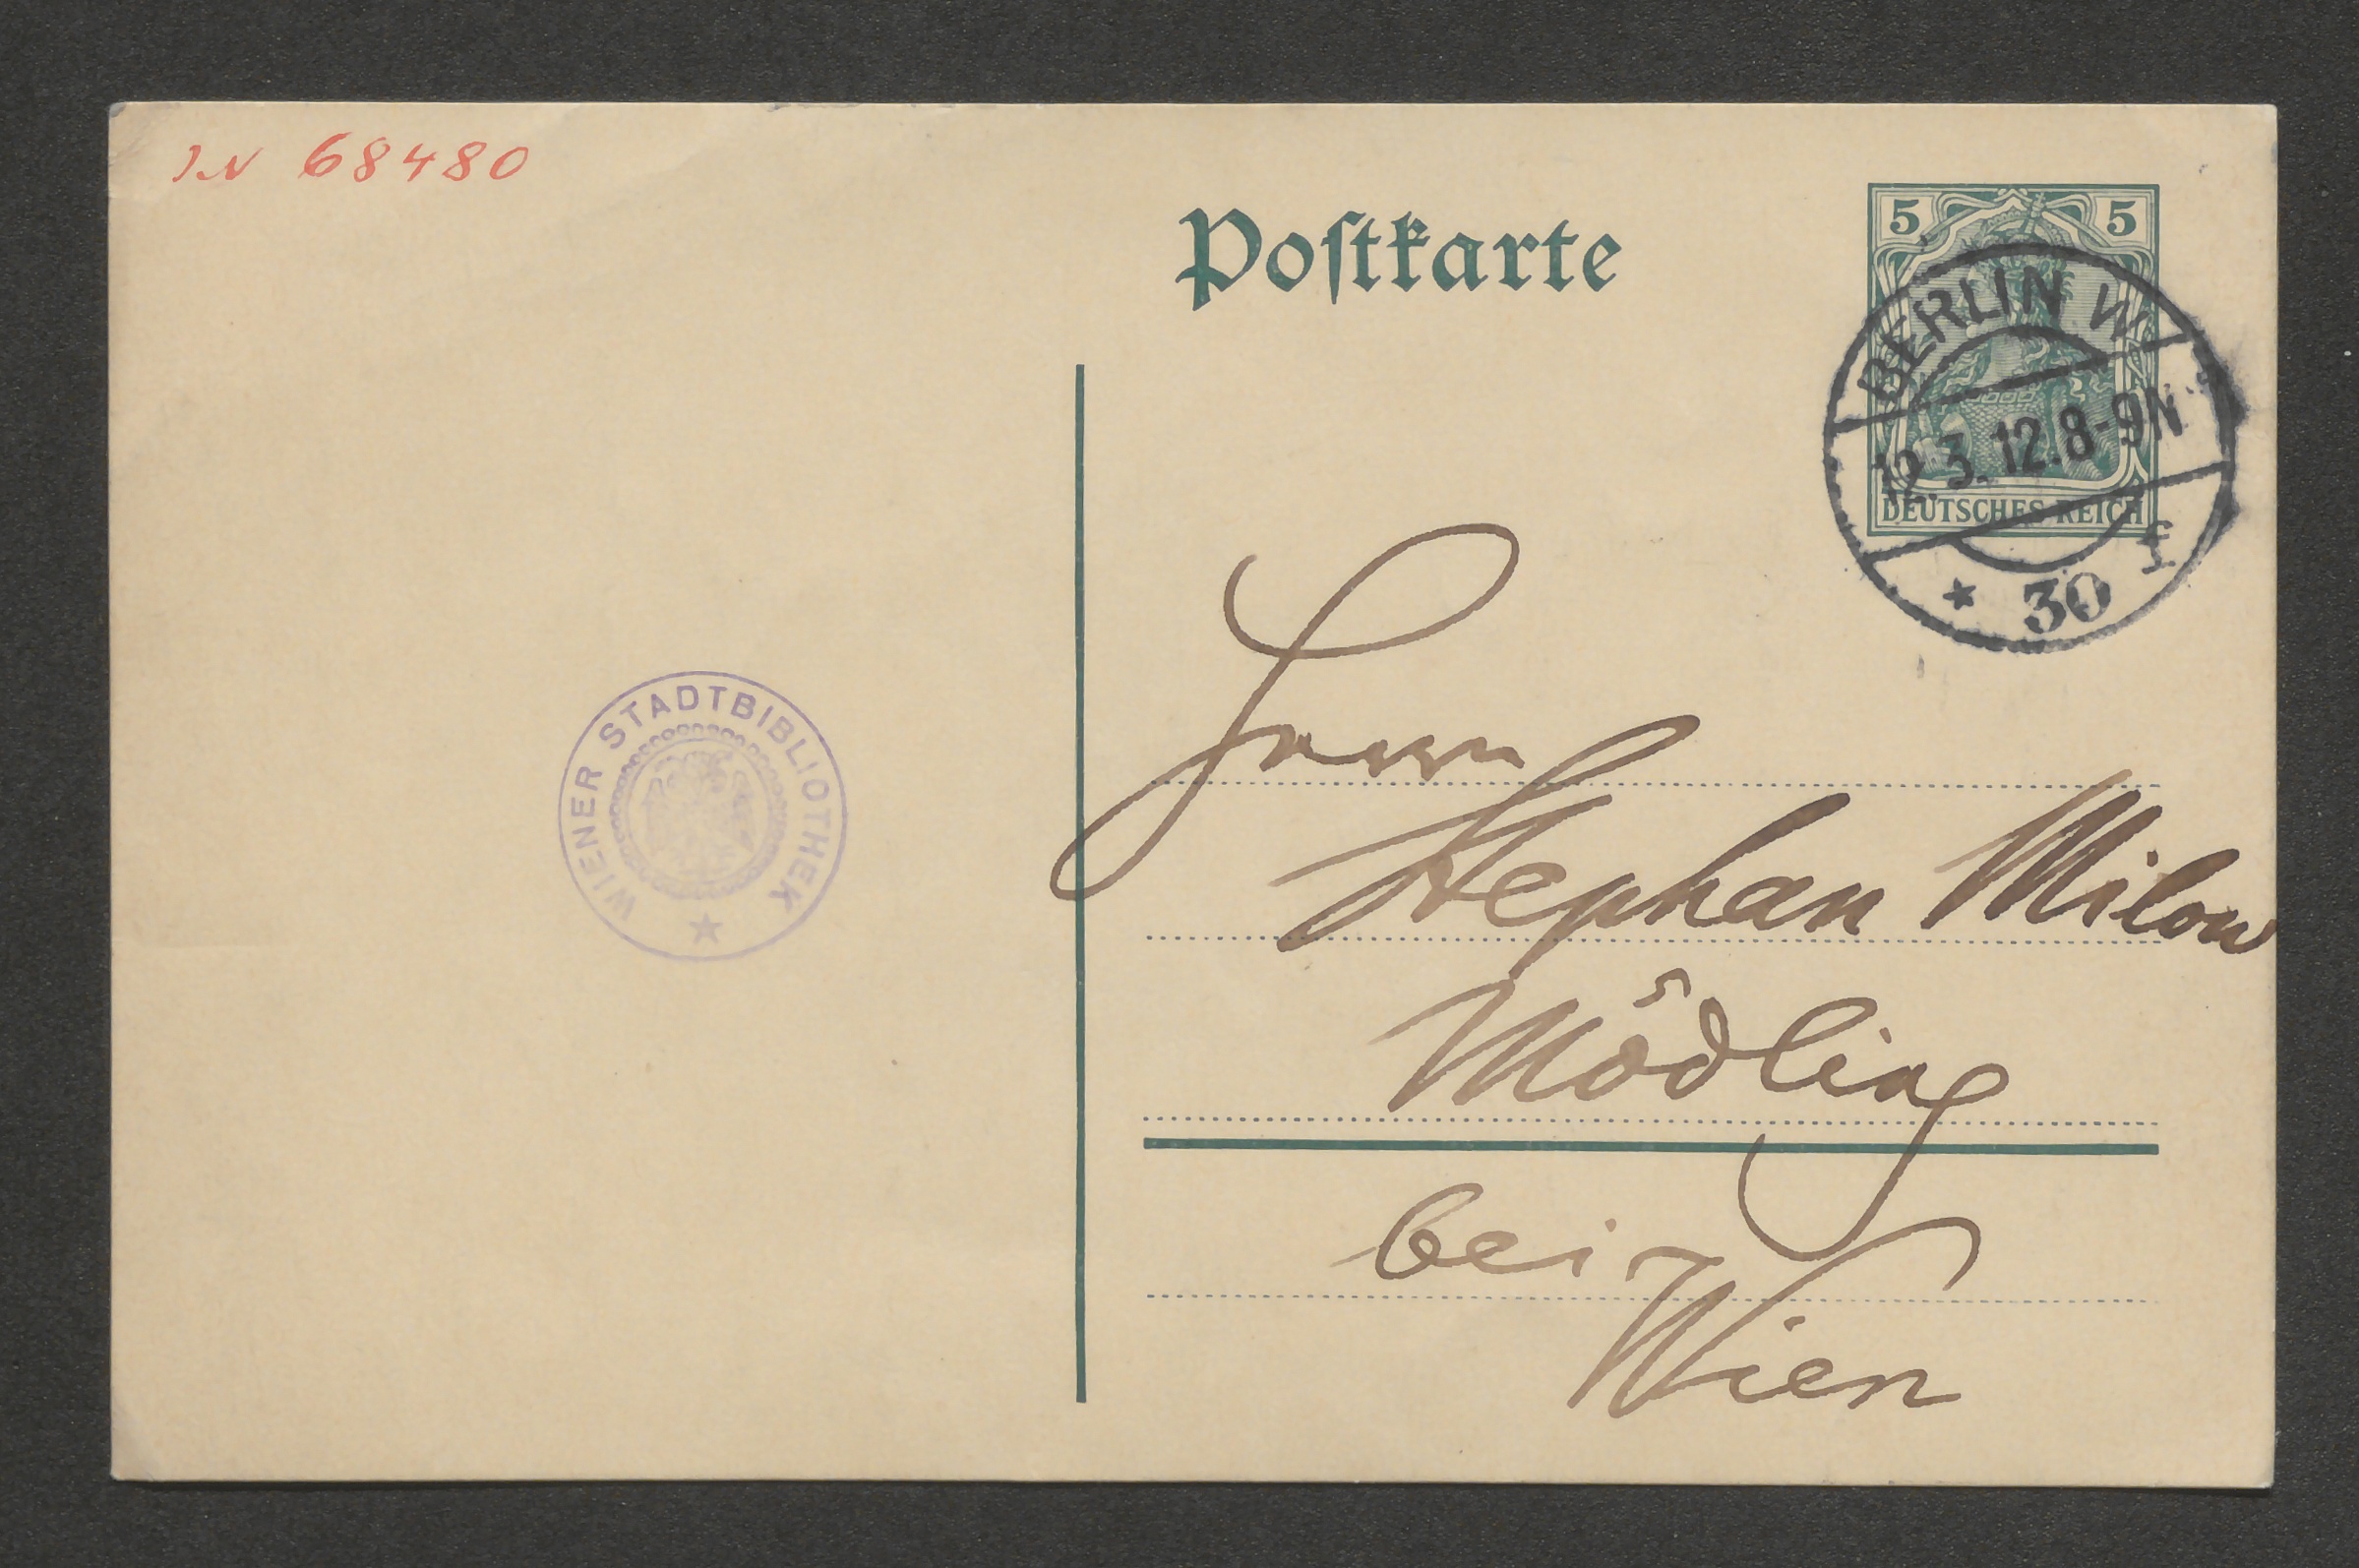 IN 68480
Postkarte
5 5
DEUTSCHES REICH
BERLIN W
12.3.12.8-9N
* 30 f
WIENER STADTBIBLIOTHEK
Herrn
Stephan Milow
Mödling
bei
Wien